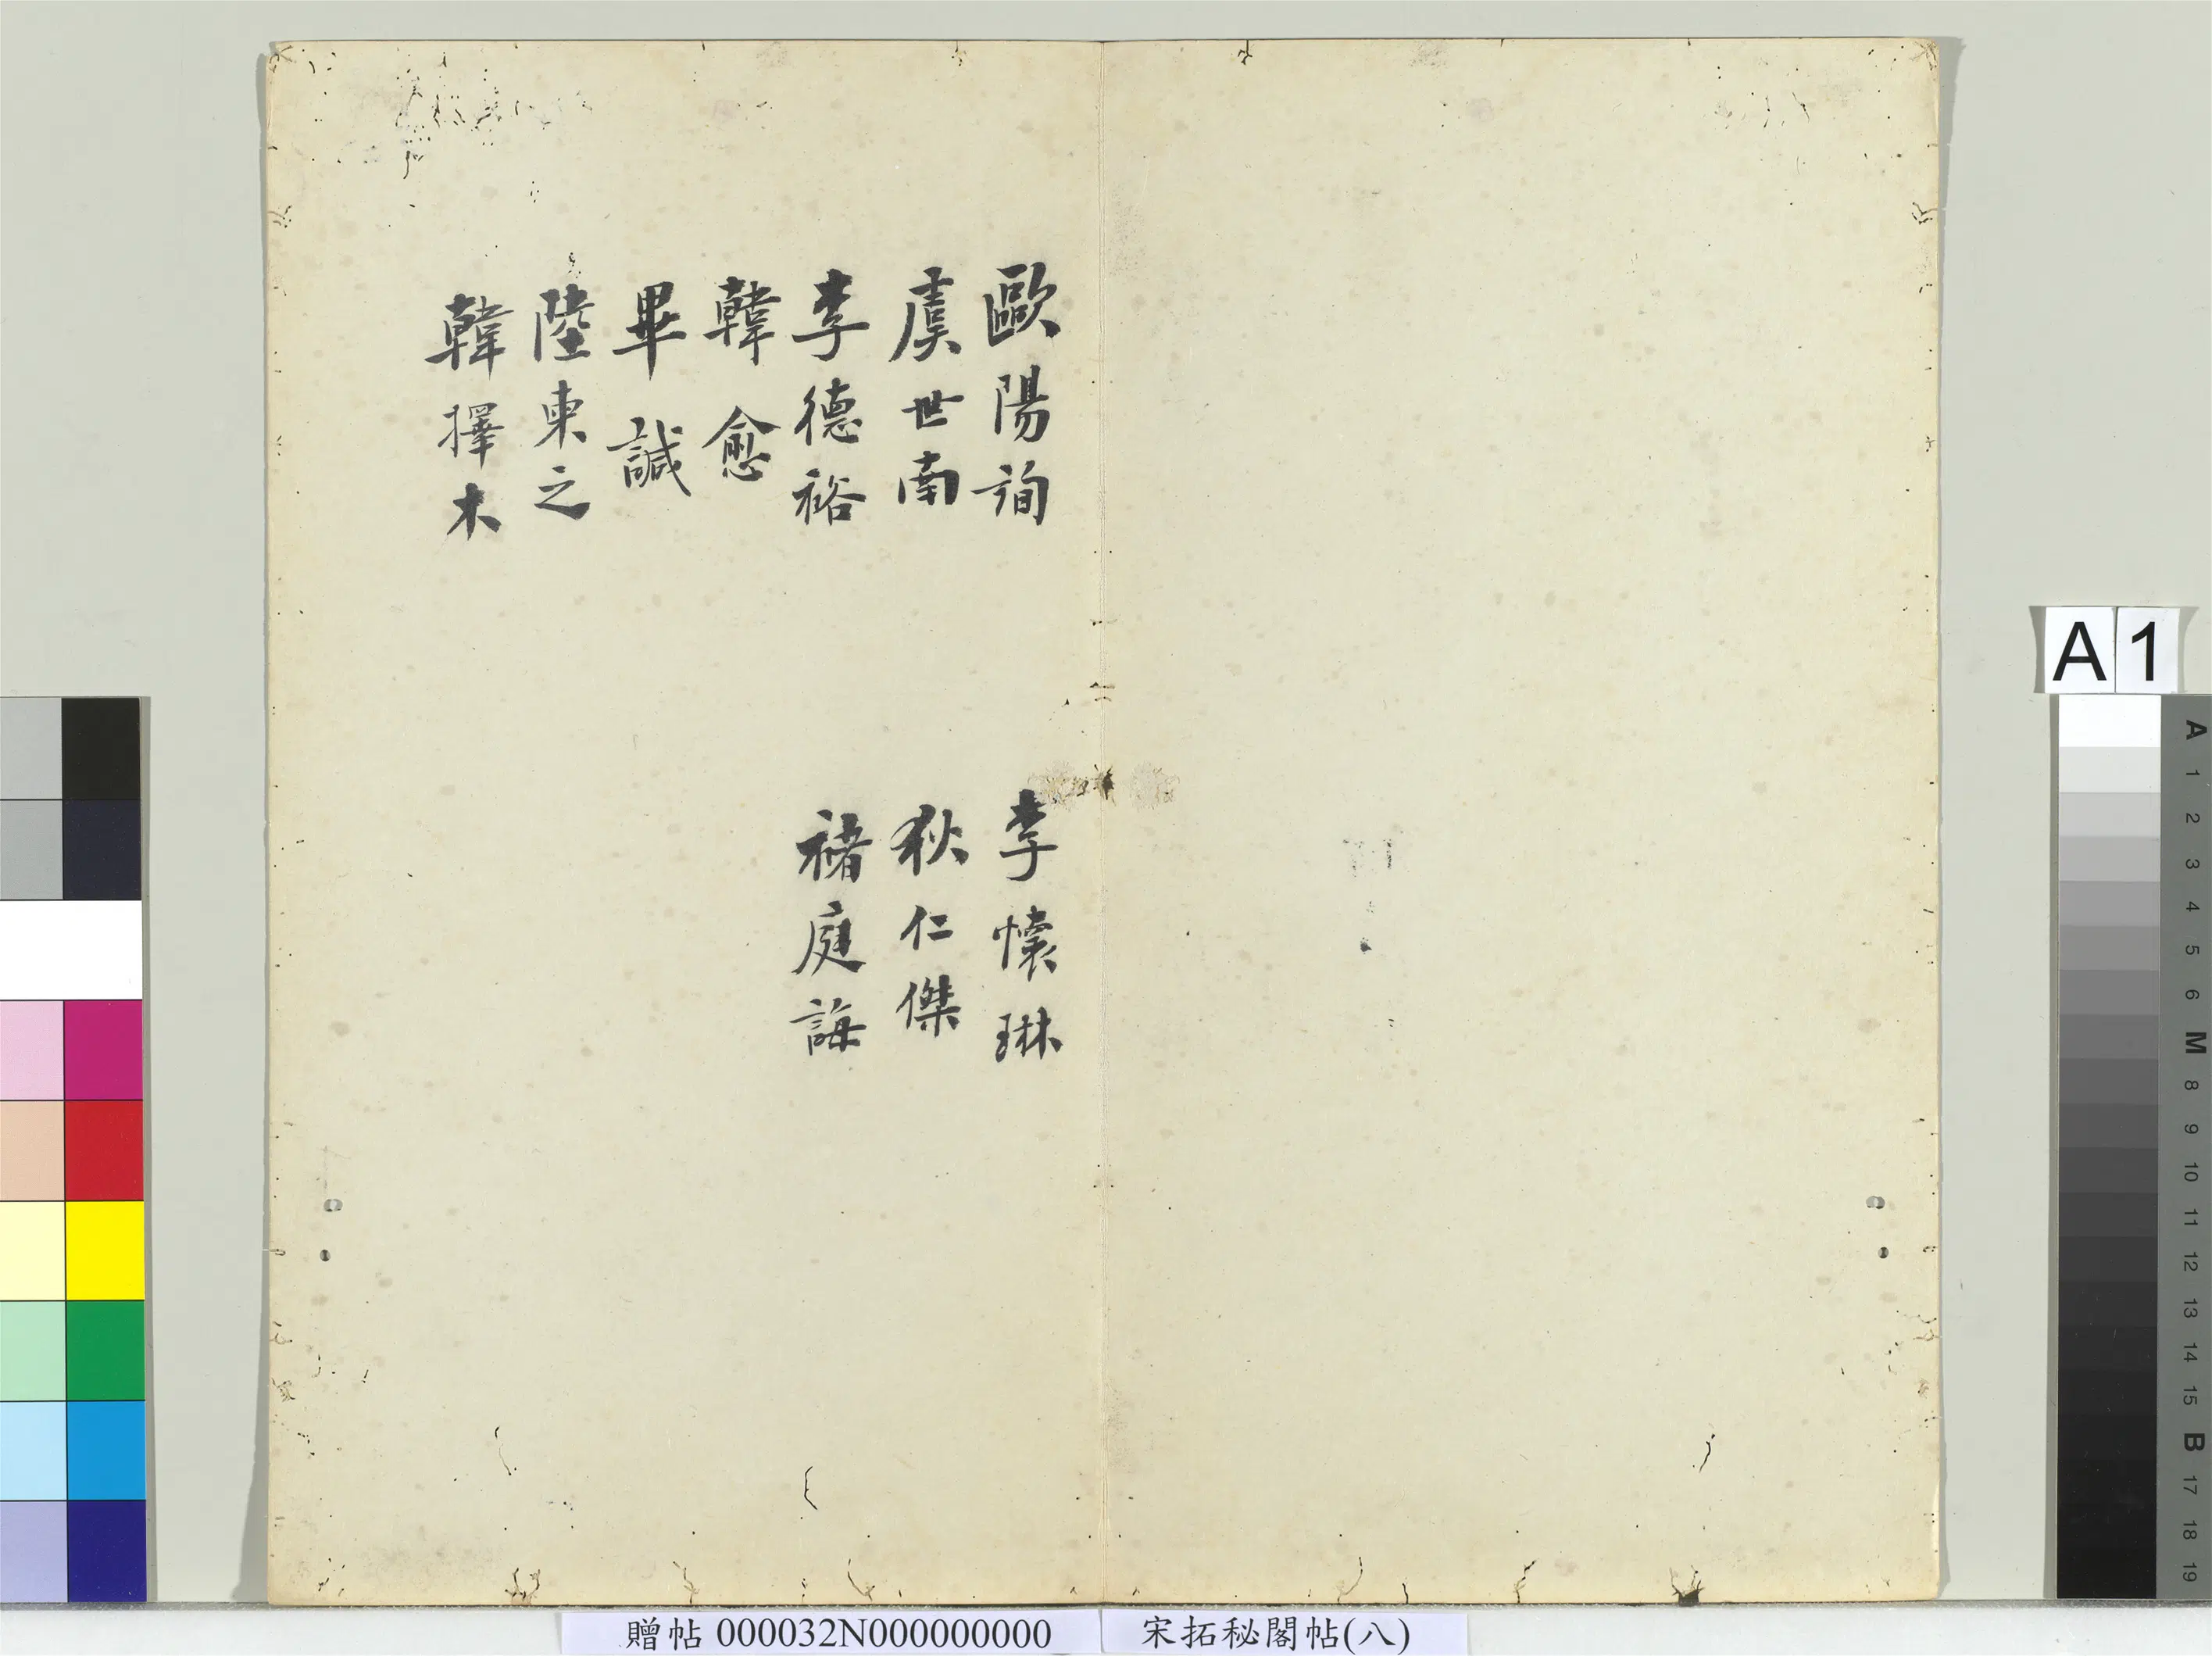 歐陽詢
虞世南
李德裕
韓愈
畢諴
陸柬之
韓擇木
李懷琳
狄仁傑
褚庭誨
贈帖 000032N000000000
宋拓秘閣帖(八)
A 1
A
1
2
3
4
5
6
M
8
9
10
11
12
13
14
15
B
17
18
19